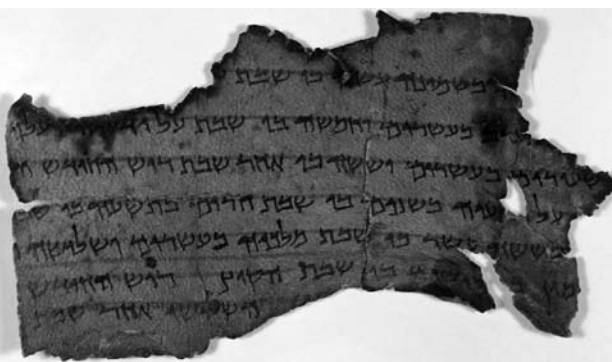 בשמונה עשר בו שבת
בעשרים וחמשה בו שבת על
שעורים בעשרים וששה בו אחר שבת רוש החודש
על בשנים בו שבת חרים בתשעה בו
בששה עשר בו שבת מלכיה בעשרים ושלושה
בו שבת הקוץ רוש החודש
השלישי אחר שבת